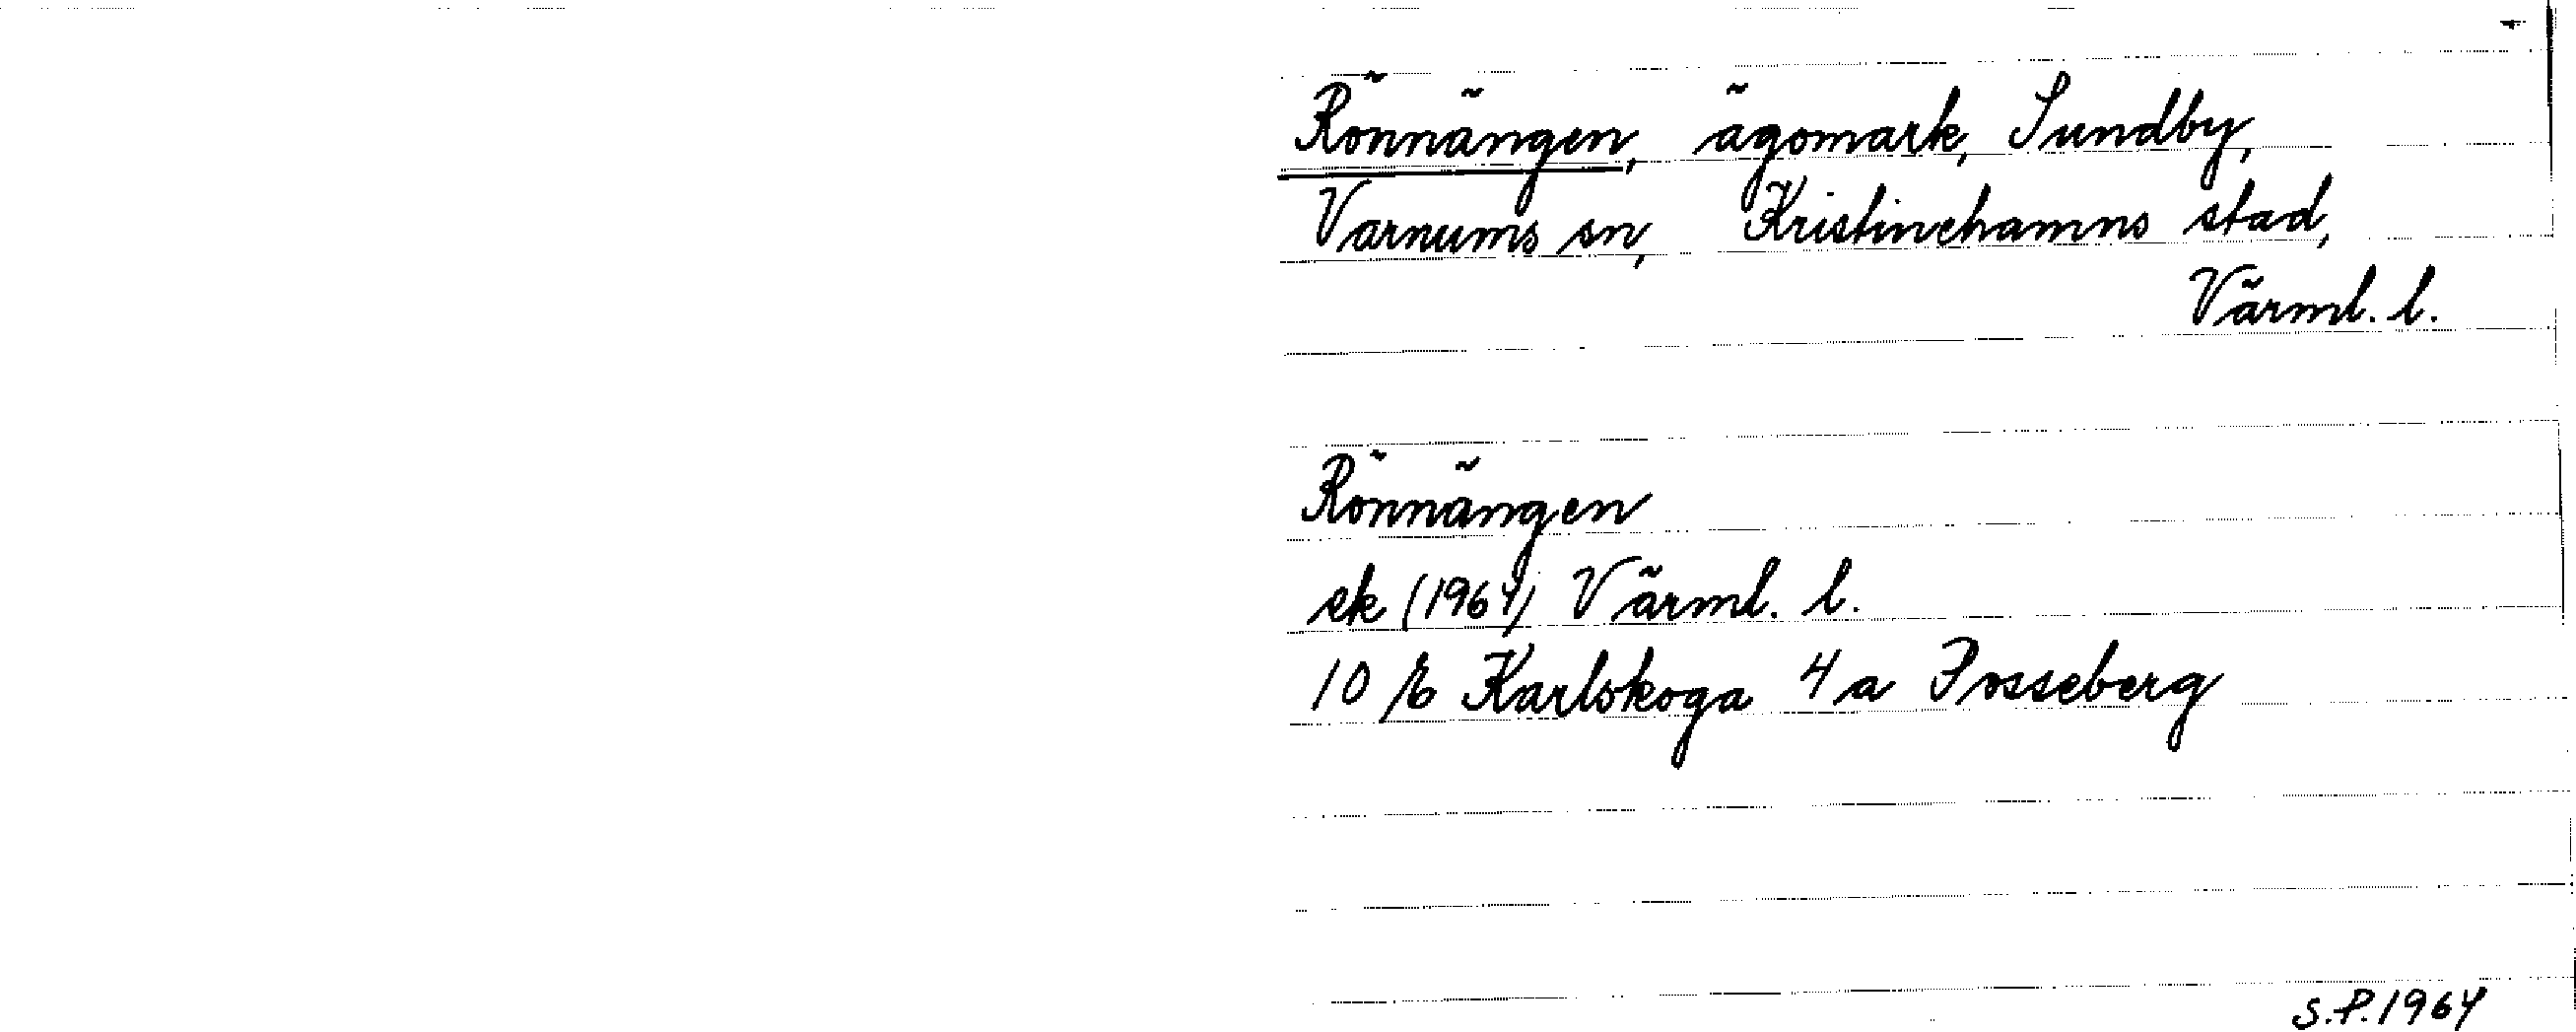 Rönnängen, ägomark, Sundby,
Varnums sn, Kristinehamns stad,
Värml. l.
Rönnängen
ek (1964) Värml. l.
10 E Karlskoga 4 a Posseberg
S.P. 1964